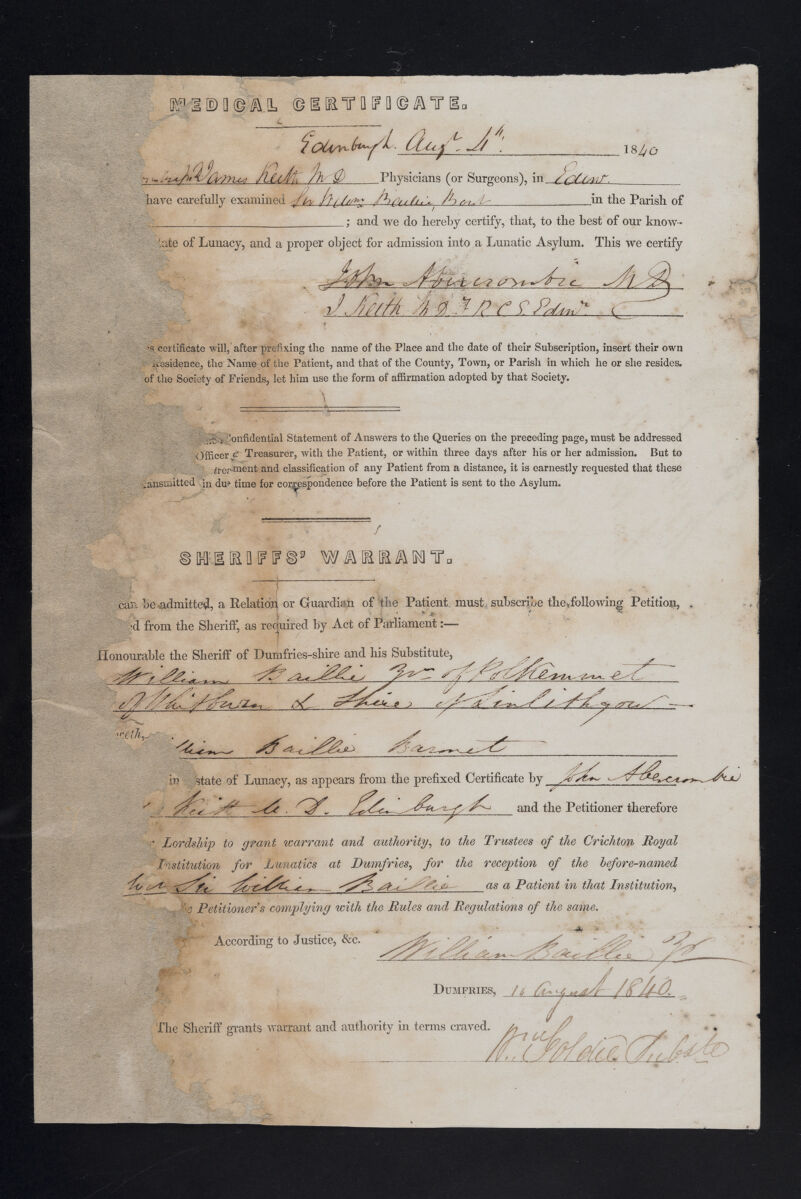 MEDICAL CERTIFICATE.
Edinburgh. Augt. 4th. 1840
James Keith M D Physicians (or Surgeons), in Edinr.
have carefully examined Sir Willm Baillie, Bart in the Parish of
; and we do hereby certify, that, to the best of our know-
ate of Lunacy, and a proper object for admission into a Lunatic Asylum. This we certify
John Abercrombie M D
J Keith M D F R C S Edinr
certificate will, after prefixing the name of the Place and the date of their Subscription, insert their own
Residence, the Name of the Patient, and that of the County, Town, or Parish in which he or she resides.
of the Society of Friends, let him use the form of affirmation adopted by that Society.
Confidential Statement of Answers to the Queries on the preceding page, must be addressed
Officer Treasurer, with the Patient, or within three days after his or her admission. But to
ment and classification of any Patient from a distance, it is earnestly requested that these
ansmitted in due time for correspondence before the Patient is sent to the Asylum.
SHERIFFS' WARRANT.
can be admitted, a Relation or Guardian of the Patient must subscribe the following Petition,
d from the Sheriff, as required by Act of Parliament:—
Honourable the Sheriff of Dumfries-shire and his Substitute,
William Baillie Yr of Polkemmet
of Whitburn & Shire of Linlithgow —
eth,
liam Baillie Baronet
in state of Lunacy, as appears from the prefixed Certificate by John Abercrombie
Keith M. D. Edinburgh and the Petitioner therefore
Lordship to grant warrant and authority, to the Trustees of the Crichton Royal
Institution for Lunatics at Dumfries, for the reception of the before-named
Sir William Baillie as a Patient in that Institution,
e Petitioner's complying with the Rules and Regulations of the same.
According to Justice, &c. William Baillie Yr
DUMFRIES, 10 August 1840.
The Sheriff grants warrant and authority in terms craved.
Wm Goldie Subste